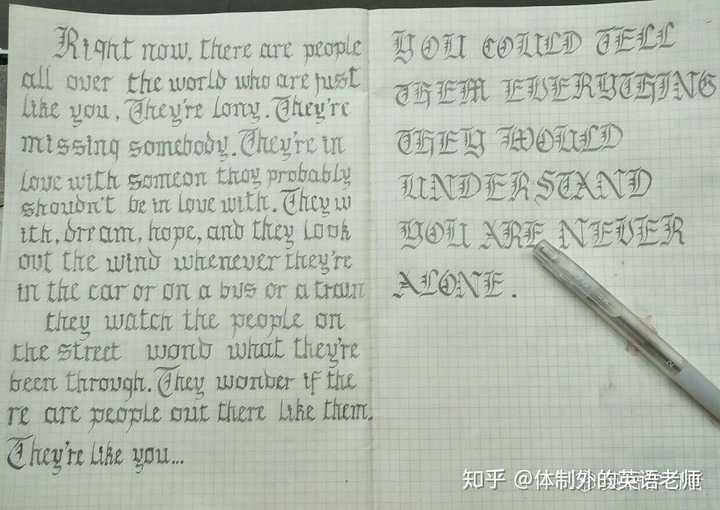 Right now, there are people
all over the world who are just
like you, They're lony. They're
missing somebody. They're in
love with someon thoy probably
shoudn't be in love with. They w
ith, dream, hope, and they look
out the wind whenever they're
in the car or on a bus or a train
they watch the people on
the street wond what they're
been through. They wonder if the
re are people out there like them.
They're like you...
YOU COULD TELL
THEM EVERYTHING
THEY WOULD
UNDERSTAND
YOU ARE NEVER
ALONE.
知乎 @体制外的英语老师